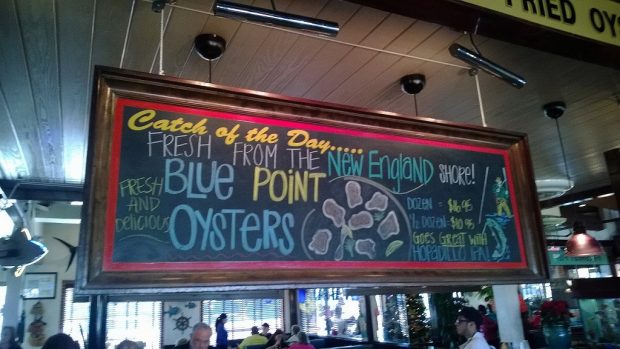 FRIED OYS
Catch of the Day.....
FRESH FROM THE NEW ENGLAND SHORE!
FRESH AND DELICIOUS
BLUE POINT
OYSTERS
DOZEN = $16.95
½ DOZEN = $10.95
GOES GREAT WITH
HOPADILLO IPA!